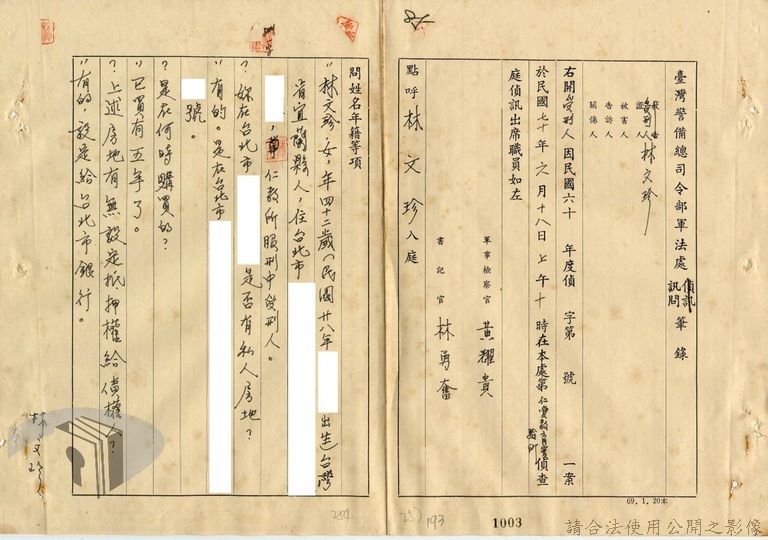 臺灣警備總司令部軍法處偵訊訊問筆錄
受刑人 林文珍
證人
被害人
告訴人
關係人
右開受刑人因民國六十 年度偵 字第 號 一案
於民國七十年六月十八日上午十 時在本處第仁愛教育實驗所偵查
庭偵訊出席職員如左
軍事檢察官 黃耀貴
書記官 林勇奮
點呼林文珍入庭
69.1.20本
問姓名年籍等項
"林文珍,女,年四十二歲(民國廿八年 出生台灣
省宜蘭縣人,住台北市
,聿仁教所服刑中受刑人。
?妳在台北市 是否有私人房地?
"有的。是在台北市
號。
?是在何時購買的?
"已買有五年了。
?上述房地有無設定抵押權給債權人?
"有的,設定給台北市銀行。
林文珍
254
253
193
1003
請合法使用公開之影像